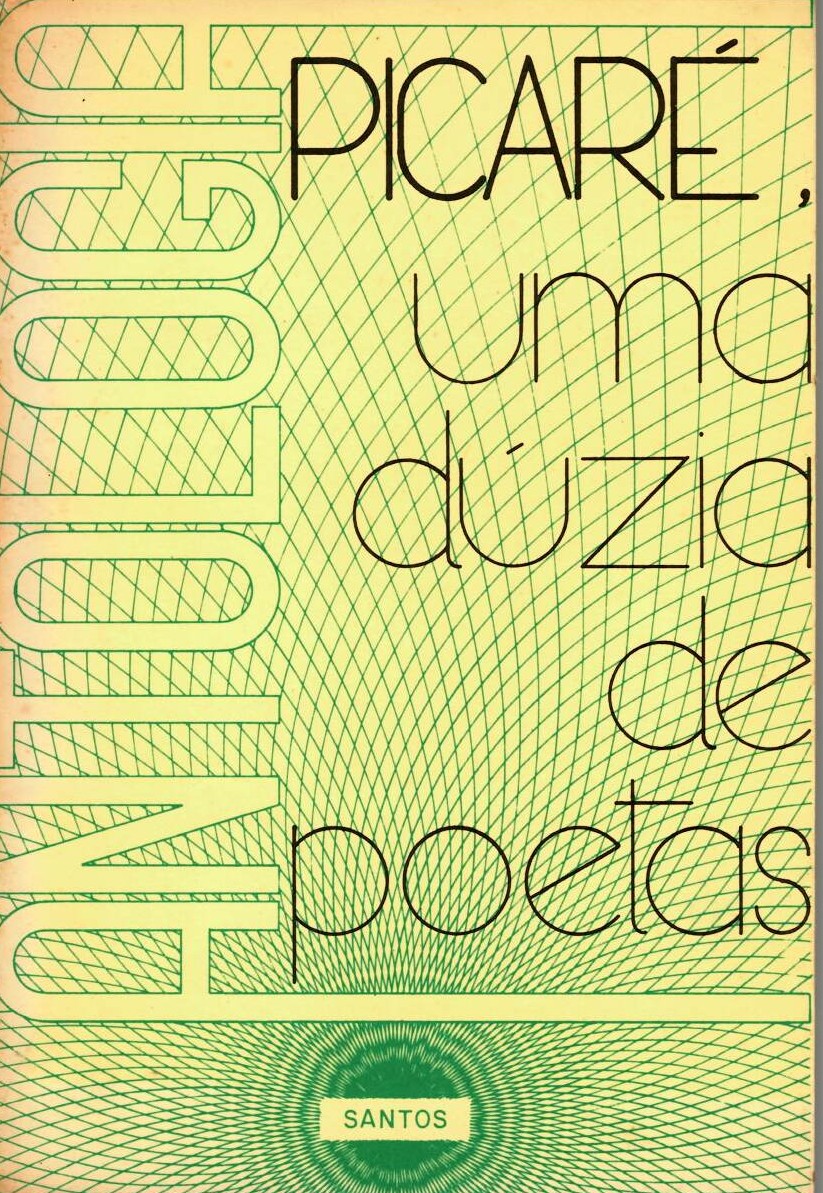 ANTOLOGIA
PICARÉ,
uma
dúzia
de
poetas
SANTOS